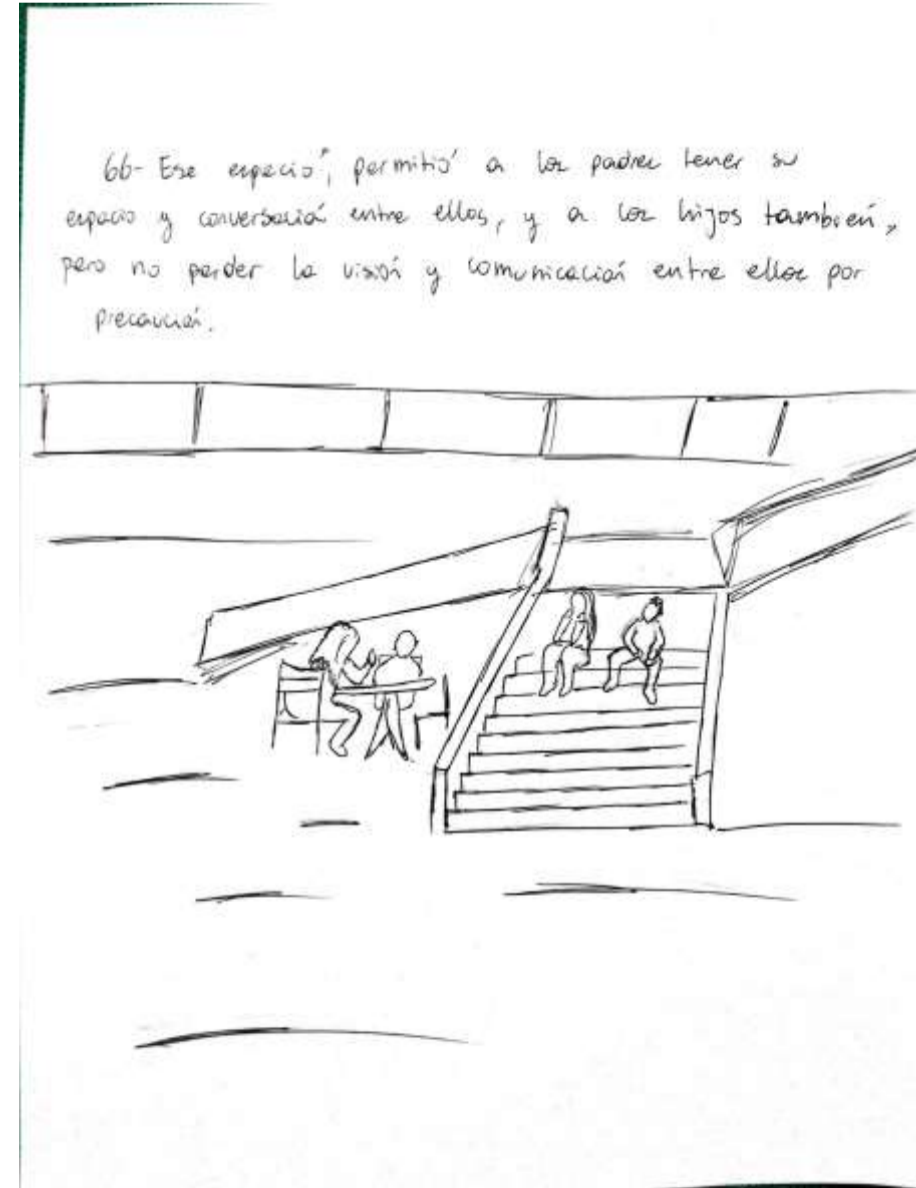 66- Ese espacio", permitió a los padres tener su
espacio y conversación entre ellos, y a los hijos también,
pero no perder la visión y comunicación entre ellos por
precaución.